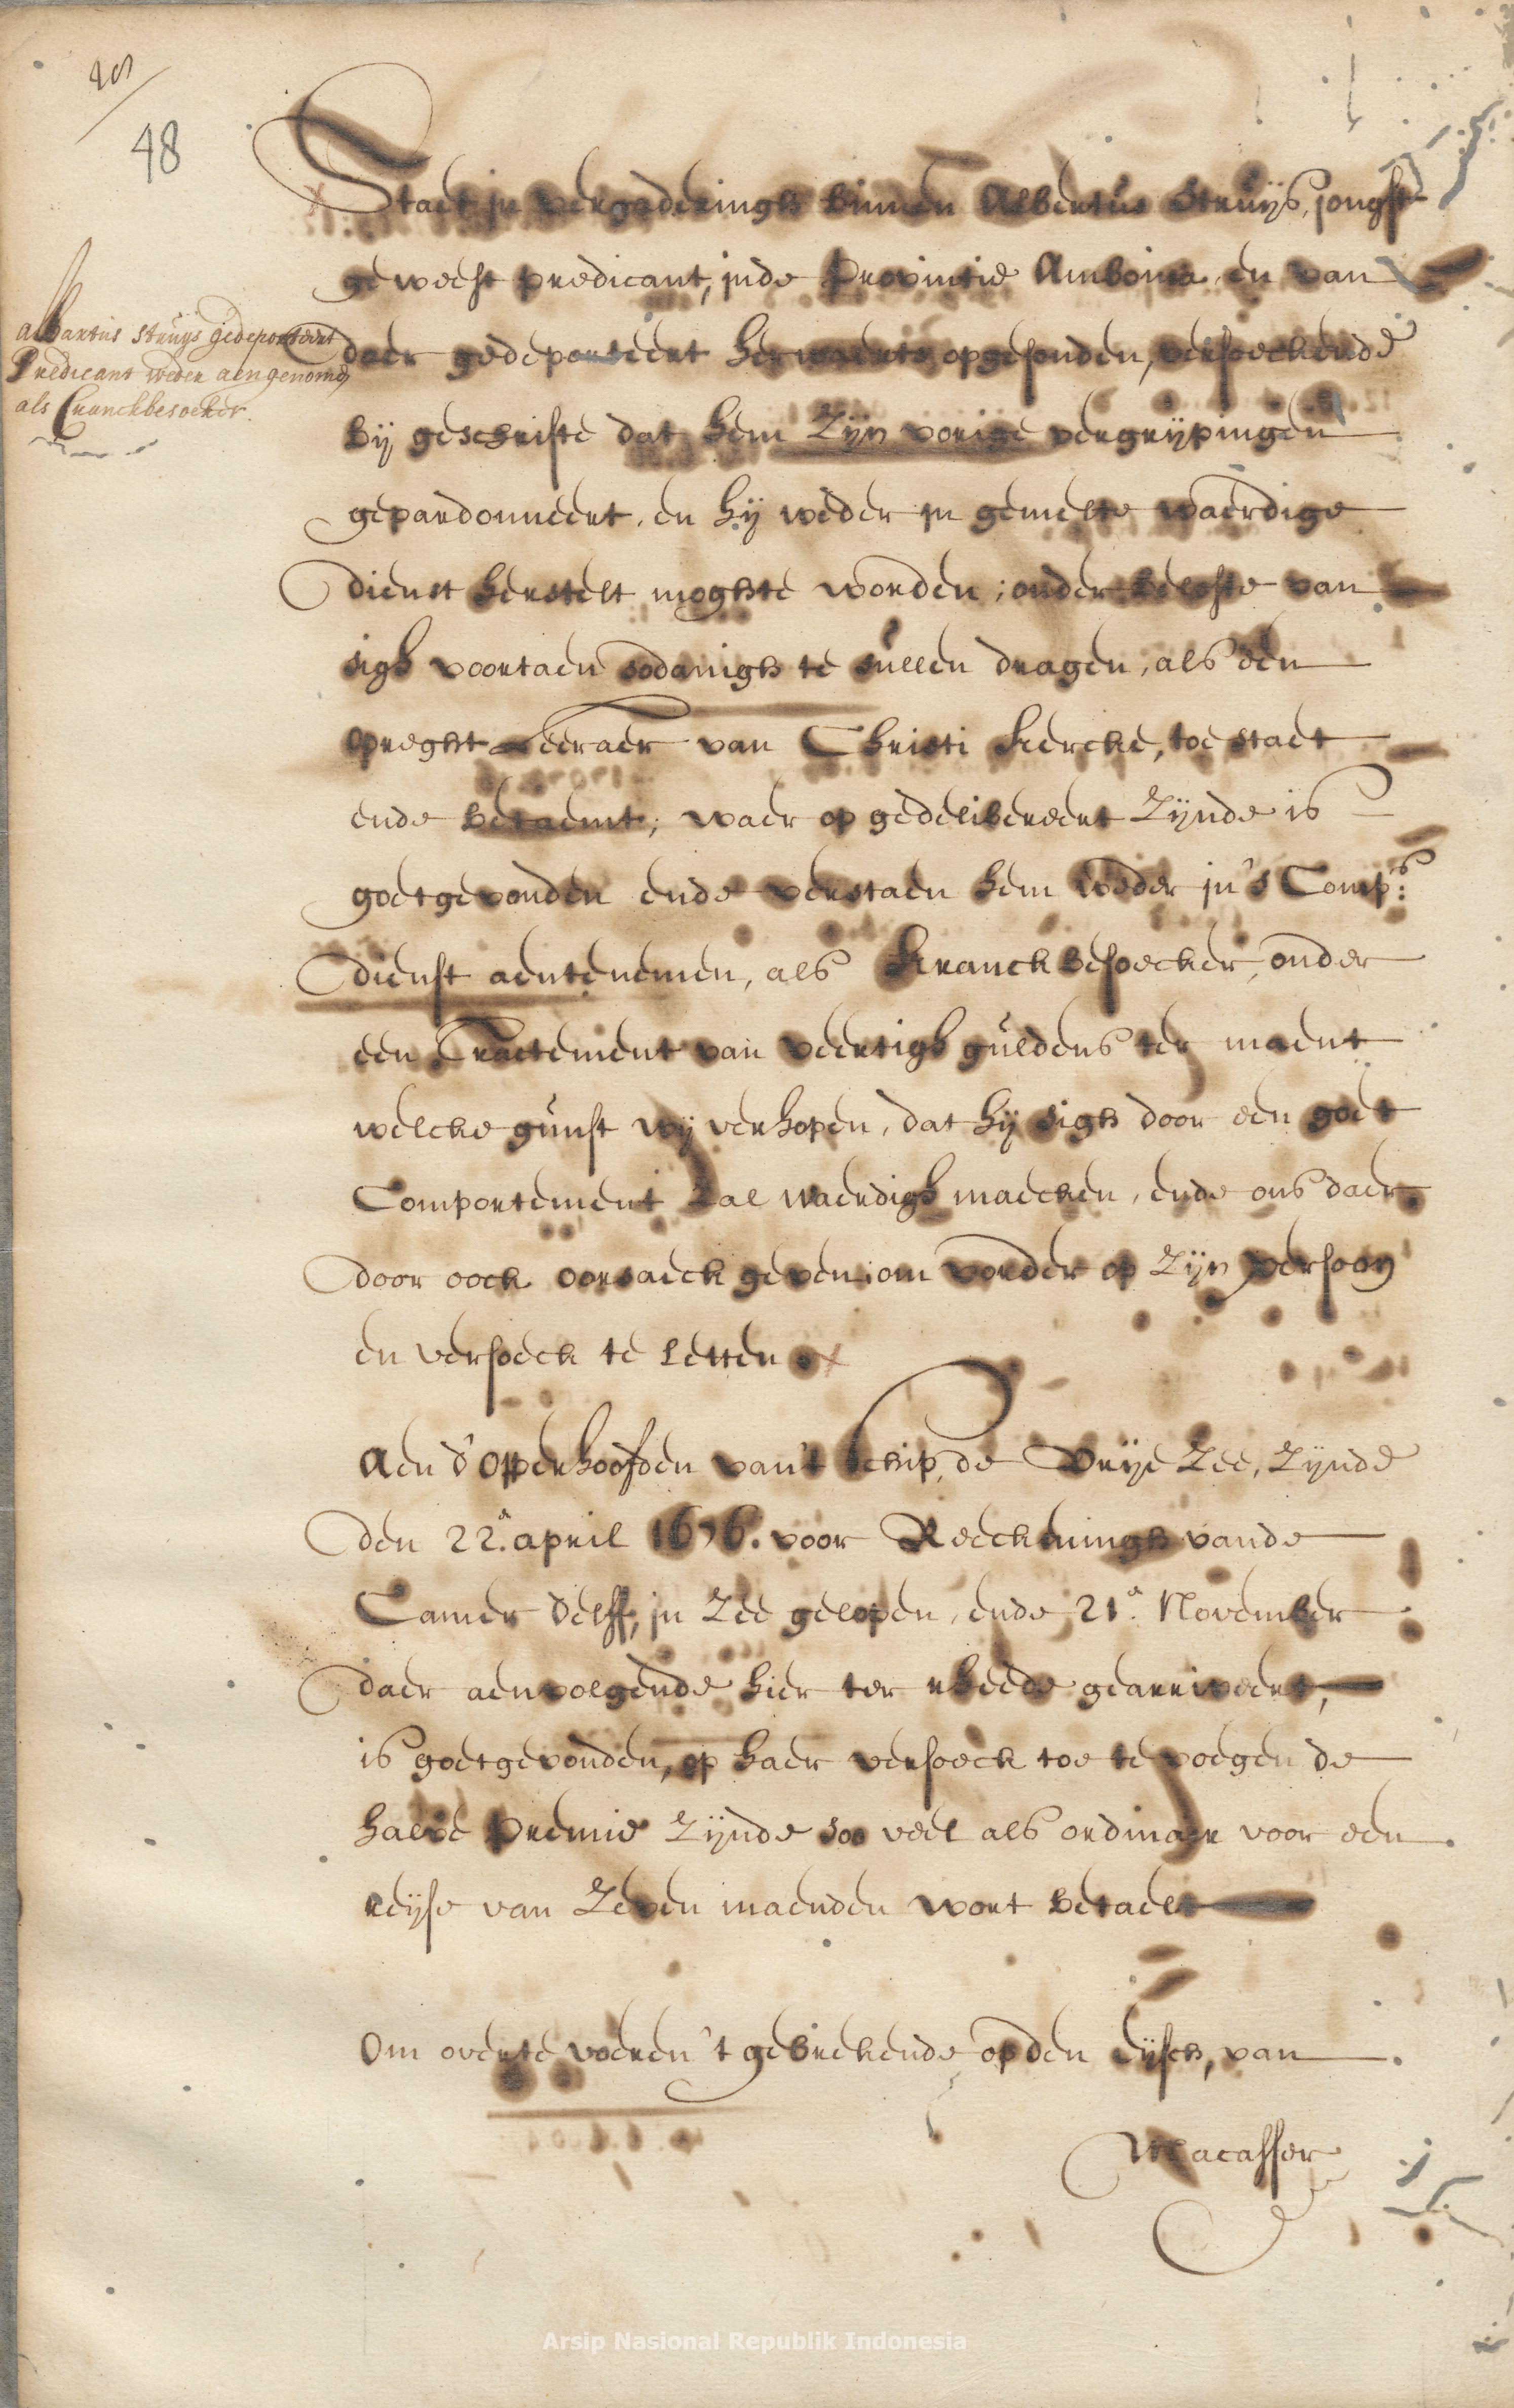 48
Staet in vergaderingh binnen Albertus Struijs, jongst
geweest predicant, inde Provintie Amboina en van
daer gedeporteert herwaerts opgesonden, versoeckende
bij geschrifte dat hem zijn vorige vergrijpingen
gepardonneert, en hij weder in gemelte waerdige
dienst herstelt moghte worden; onder belofte van
sigh voortaen sodanigh te sullen dragen, als een
opreght Leeraer van Christi kercke, toe staet
ende betaemt; waer op gedelibereert zijnde is
goetgevonden ende verstaen hem weder in 's Comp:s
dienst aentenemen, als kranckbesoecker, onder
een Tractement van veertigh guldens ter maent
welcke gunst wij verhopen, dat hij sigh door een goet
Comportement zal waerdigh maecken, ende ons daer
door oock oorsaeck geven om vorder op zijn persoon
en versoeck te letten
albartus struijs gedeporteert
Predicant weder aengenomen
als Cranckbesoeker.
Aen d' opperhoofden van't schip, de Vrije Zee, zijnde
den 22.a april 1676. voor Reeckeningh vande
Camer Delff, in zee gelopen, ende 21.a November
daer aenvolgende hier ter rheede gearriveert,
is goetgevonden, op haer versoeck toe te voegen de
halve Premie zijnde soo veel als ordinaer voor een
reijse van zeven maenden wort betaelt
Om overte voeren 't gebrekende op den eijsch, van
Macasser
Arsip Nasional Republik Indonesia